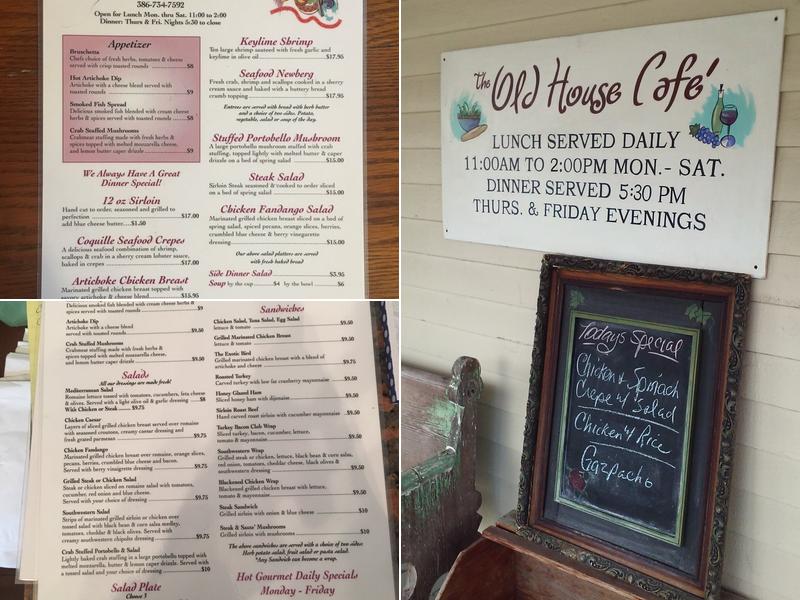 386-734-7592
Open for Lunch Mon. thru Sat. 11:00 to 2:00
Dinner: Thurs & Fri. Nights 5:30 to close
Appetizer
Bruschetta
Chefs choice of fresh herbs, tomatoes & cheese
served with crisp toasted rounds $8
Hot Artichoke Dip
Artichoke with a cheese blend served with
toasted rounds $9
Smoked Fish Spread
Delicious smoked fish blended with cream cheese
herbs & spices served with toasted rounds $8
Crab Stuffed Mushrooms
Crabmeat stuffing made with fresh herbs &
spices topped with melted mozzarella cheese,
and lemon butter caper drizzle $9
We Always Have A Great
Dinner Special!
12 oz Sirloin
Hand cut to order, seasoned and grilled to
perfection $17.00
add blue cheese butter....$1.50
Coquille Seafood Crepes
A delicious seafood combination of shrimp,
scallops & crab in a sherry cream lobster sauce,
baked in crepes $17.00
Artichoke Chicken Breast
Marinated grilled chicken breast topped with
savory artichoke & cheese blend $15.95
Keylime Shrimp
Ten large shrimp sauteed with fresh garlic and
keylime in olive oil $17.95
Seafood Newberg
Fresh crab, shrimp and scallops cooked in a sherry
cream sauce and baked with a buttery bread
crumb topping $17.95
Entrees are served with bread with herb butter
and a choice of two sides. Potato,
vegetable, salad or soup of the day.
Stuffed Portobello Mushroom
A large portobello mushroom stuffed with crab
stuffing, topped lightly with melted butter & caper
drizzle on a bed of spring salad $15.00
Steak Salad
Sirloin Steak seasoned & cooked to order sliced
on a bed of spring salad $15.00
Chicken Fandango Salad
Marinated grilled chicken breast sliced on a bed of
spring salad, spiced pecans, orange slices, berries,
crumbled blue cheese & berry vinegarette
dressing $15.00
Our above salad platters are served
with fresh baked bread
Side Dinner Salad $3.95
Soup by the cup $4 by the bowl $6
Delicious smoked fish blended with cream cheese herbs &
spices served with toasted rounds $9
Artichoke Dip
Artichoke with a cheese blend
served with toasted rounds $9.50
Crab Stuffed Mushrooms
Crabmeat stuffing made with fresh herbs &
spices topped with melted mozzarella cheese,
and lemon butter caper drizzle $9.50
Salads
All our dressings are made fresh!
Mediterranean Salad
Romaine lettuce tossed with tomatoes, cucumbers, feta cheese
& olives. Served with a light olive oil & garlic dressing $8
With Chicken or Steak $9.75
Chicken Caesar
Layers of sliced grilled chicken breast served over romaine
with seasoned croutons, creamy caesar dressing and
fresh grated parmesan $9.75
Chicken Fandango
Marinated grilled chicken breast over romaine, orange slices,
pecans, berries, crumbled blue cheese and bacon.
Served with berry vinegarette dressing $9.75
Grilled Steak or Chicken Salad
Steak or chicken sliced on romaine salad with tomatoes,
cucumber, red onion and blue cheese.
Served with your choice of dressing $9.75
Southwestern Salad
Strips of marinated grilled sirloin or chicken over
tossed salad with black bean & corn salsa medley,
tomatoes, cheddar & black olives. Served with
creamy southwestern chipotle dressing $9.75
Crab Stuffed Portobello & Salad
Lightly baked crab stuffing in a large portobello topped with
melted mozzarella, butter & lemon caper drizzle. Served with
a tossed salad and your choice of dressing $10
Salad Plate
Choose 3
Sandwiches
Chicken Salad, Tuna Salad, Egg Salad
lettuce & tomato $9.50
Grilled Marinated Chicken Breast
lettuce & tomato $9.50
The Exotic Bird
Grilled marinated chicken breast with a blend of
artichoke and cheese $9.75
Roasted Turkey
Carved turkey with low fat cranberry mayonnaise $9.50
Honey Glazed Ham
Sliced honey ham with dijonaise $9.50
Sirloin Roast Beef
Hand carved roast sirloin with cucumber mayonnaise $9.50
Turkey Bacon Club Wrap
Sliced turkey, bacon, cucumber, lettuce,
tomato & mayonnaise $9.50
Southwestern Wrap
Grilled steak or chicken, lettuce, black bean & corn salsa,
red onion, tomatoes, cheddar cheese, black olives &
southwestern dressing $9.50
Blackened Chicken Wrap
Blackened grilled chicken breast with lettuce,
tomato & mayonnaise $9.50
Steak Sandwich
Grilled sirloin with onion & blue cheese $10
Steak & Saute' Mushrooms
Grilled sirloin with mushrooms $10
The above sandwiches are served with a choice of two sides:
Herb potato salad, fruit salad or pasta salad.
*Any Sandwich can become a wrap.
Hot Gourmet Daily Specials
Monday - Friday
The Old House Café
LUNCH SERVED DAILY
11:00AM TO 2:00PM MON.- SAT.
DINNER SERVED 5:30 PM
THURS. & FRIDAY EVENINGS
Todays Special
Chicken & Spinach
Crepe w/ Salad
Chicken & Rice
Gazpacho